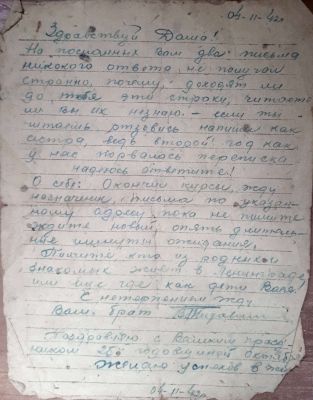 04-11-42г
Здравствуй Даша!
На посланных Вам два письма
никокого ответа не получил
странно, почему, доходят ли
до тебя эти строки, читаете
ли вы их незнаю. – если ты
читаешь отзовись напиши как
сестра, ведь второй год как
у нас порвалась переписка
надеюсь ответите!
О себе: Окончил курсы, жду
назначения, письма по указан-
ному адресу пока не пишите
ждите новый, опять длитель-
ные минуты ожидания.
Пишите кто из родных и
знакомых живет в Ленинграде,
или еще где как дети Вали.
С нетерпением жду
Ваш брат
Поздравляю с Великим празд-
ником 25й годовщиной Октября
желаю успехов в
04-11-42г